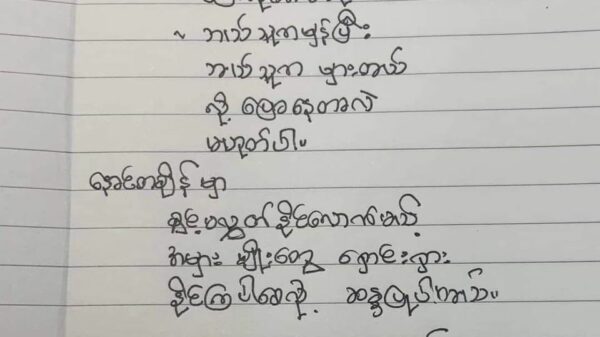 ~ ဘယ်သူကမှန်ပြီး
ဘယ်သူက မှားတယ်
လို့ ပြောနေတာလဲ
မဟုတ်ပါ။
နောင်တချိန်မှာ
ခွင့်မလွှတ်နိုင်လောက်မယ့်
အမှား မျိုးတွေ ရှောင်လွှား
နိုင်ကြပါစေလို့ ဆန္ဒပြုပါတယ်။